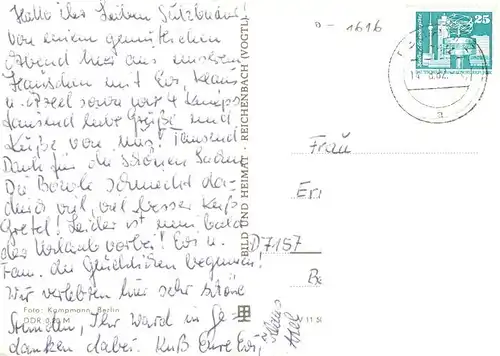 Hallo ihr lieben Sulzbacher!
Von einem gemütlichen
Abend hier aus unserem
Häuschen mit Evi, Klaus
u. Axel sowie wir 4
tausend liebe Grüße und
Küße von uns! Tausend
Dank für die schönen Sachen
Die Bowle schmeckt da-
durch viel, viel besser
Gretel! Leider ist nun bald
der Urlaub vorbei! Evi u.
Fam. die Glücklichen beginnen!
Wir verlebten hier sehr schöne
Stunden, Ihr ward in Ge-
danken dabei. Kuß Eure Evi,
Klaus
Axel
Foto: Kampmann, Berlin
DDR M
BILD UND HEIMAT · REICHENBACH (VOGTL)
1616
25
Frau
D 7157
V 11 50